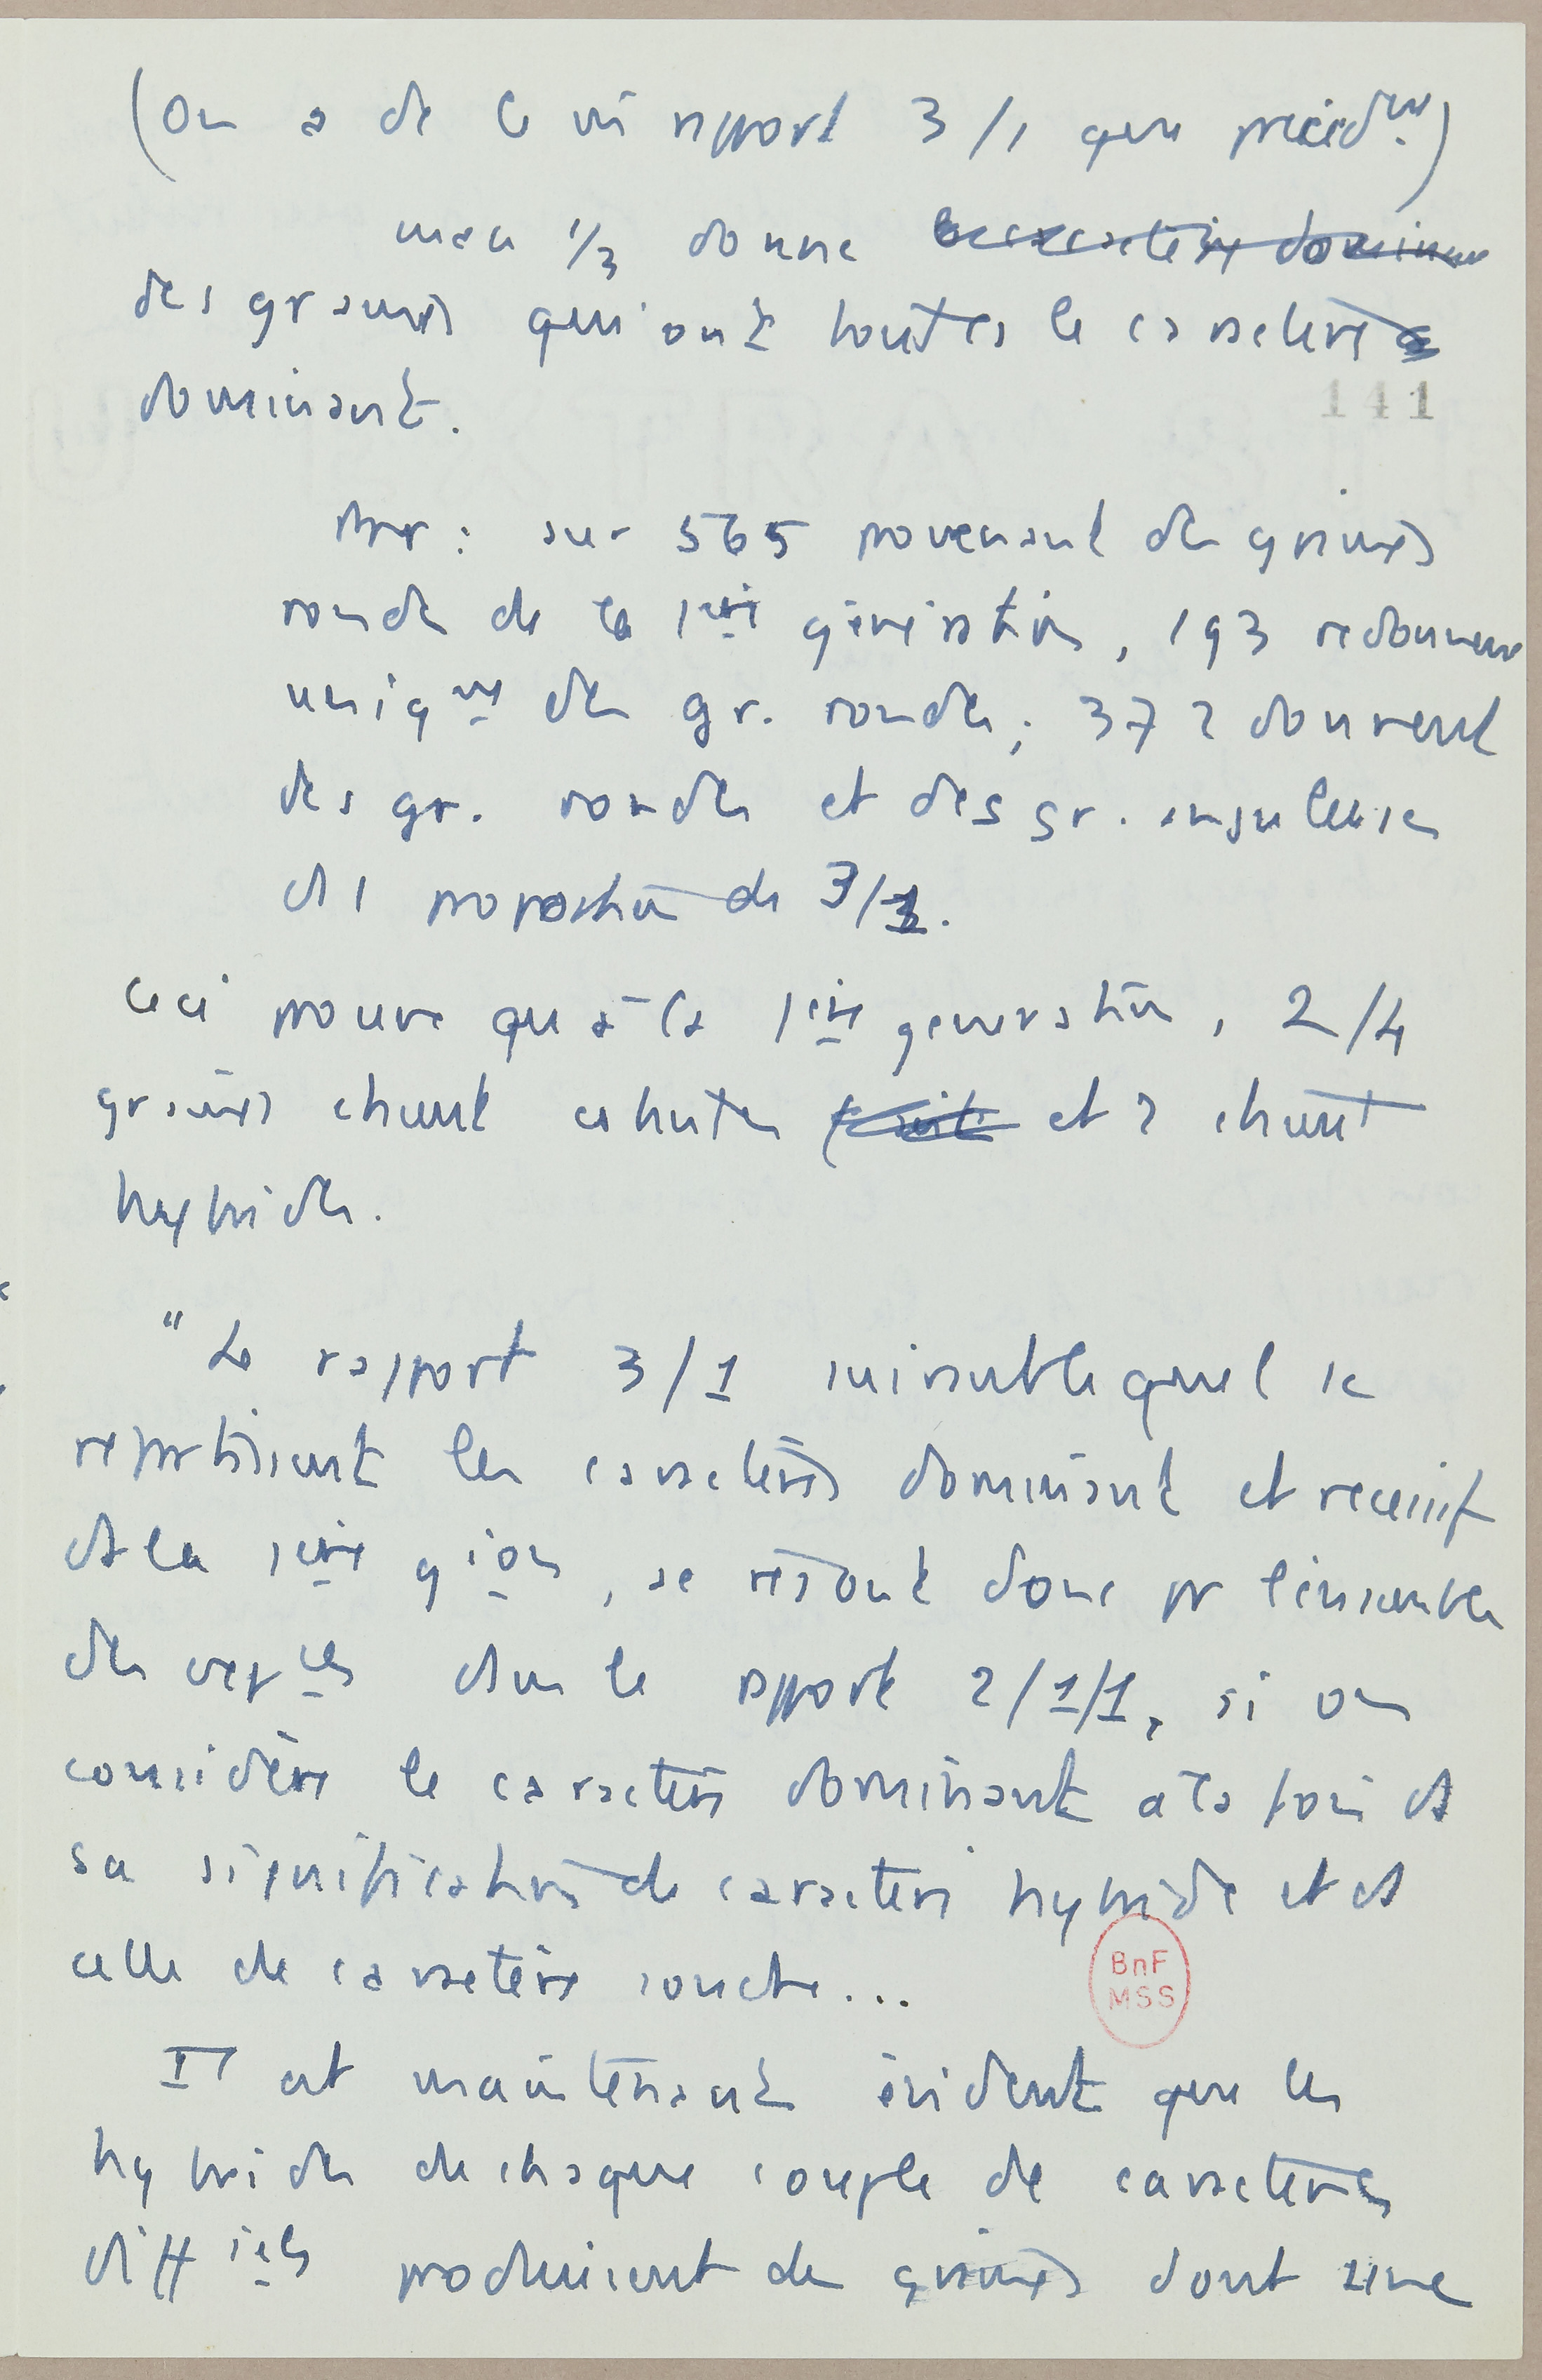 (on a de le mm rapport 3/1 que précédmt)
mais 1/3 donne le caractère dominan
des graines qui ont toutes le caractère
dominant.
141
: sur 565 provenant de graines
rondes de la 1ère génération, 193 redonnent
uniqmt des gr. rondes ; 372 donnent
des gr. rondes et des gr. anguleuses
ds 1 proportion de 3/1.
Ceci prouve qu'à la 1ère generation, 2/4
graines étaient et 2 étaient
hybrides.
"Le rapport 3/1 suivant lequel se
repartissent les caractères dominant et recessif
ds la 1ère gion, se résout donc pr l'ensemble
des ds le rapport 2/1/1, si on
considère le caractère dominant à la fois ds
sa signification de caractère hybride et ds
celle de caractère souche...
BnF
MSS
Il est maintenant évident que les
hybrides de chaque couple de caractères
différiels produisent des graines dont une